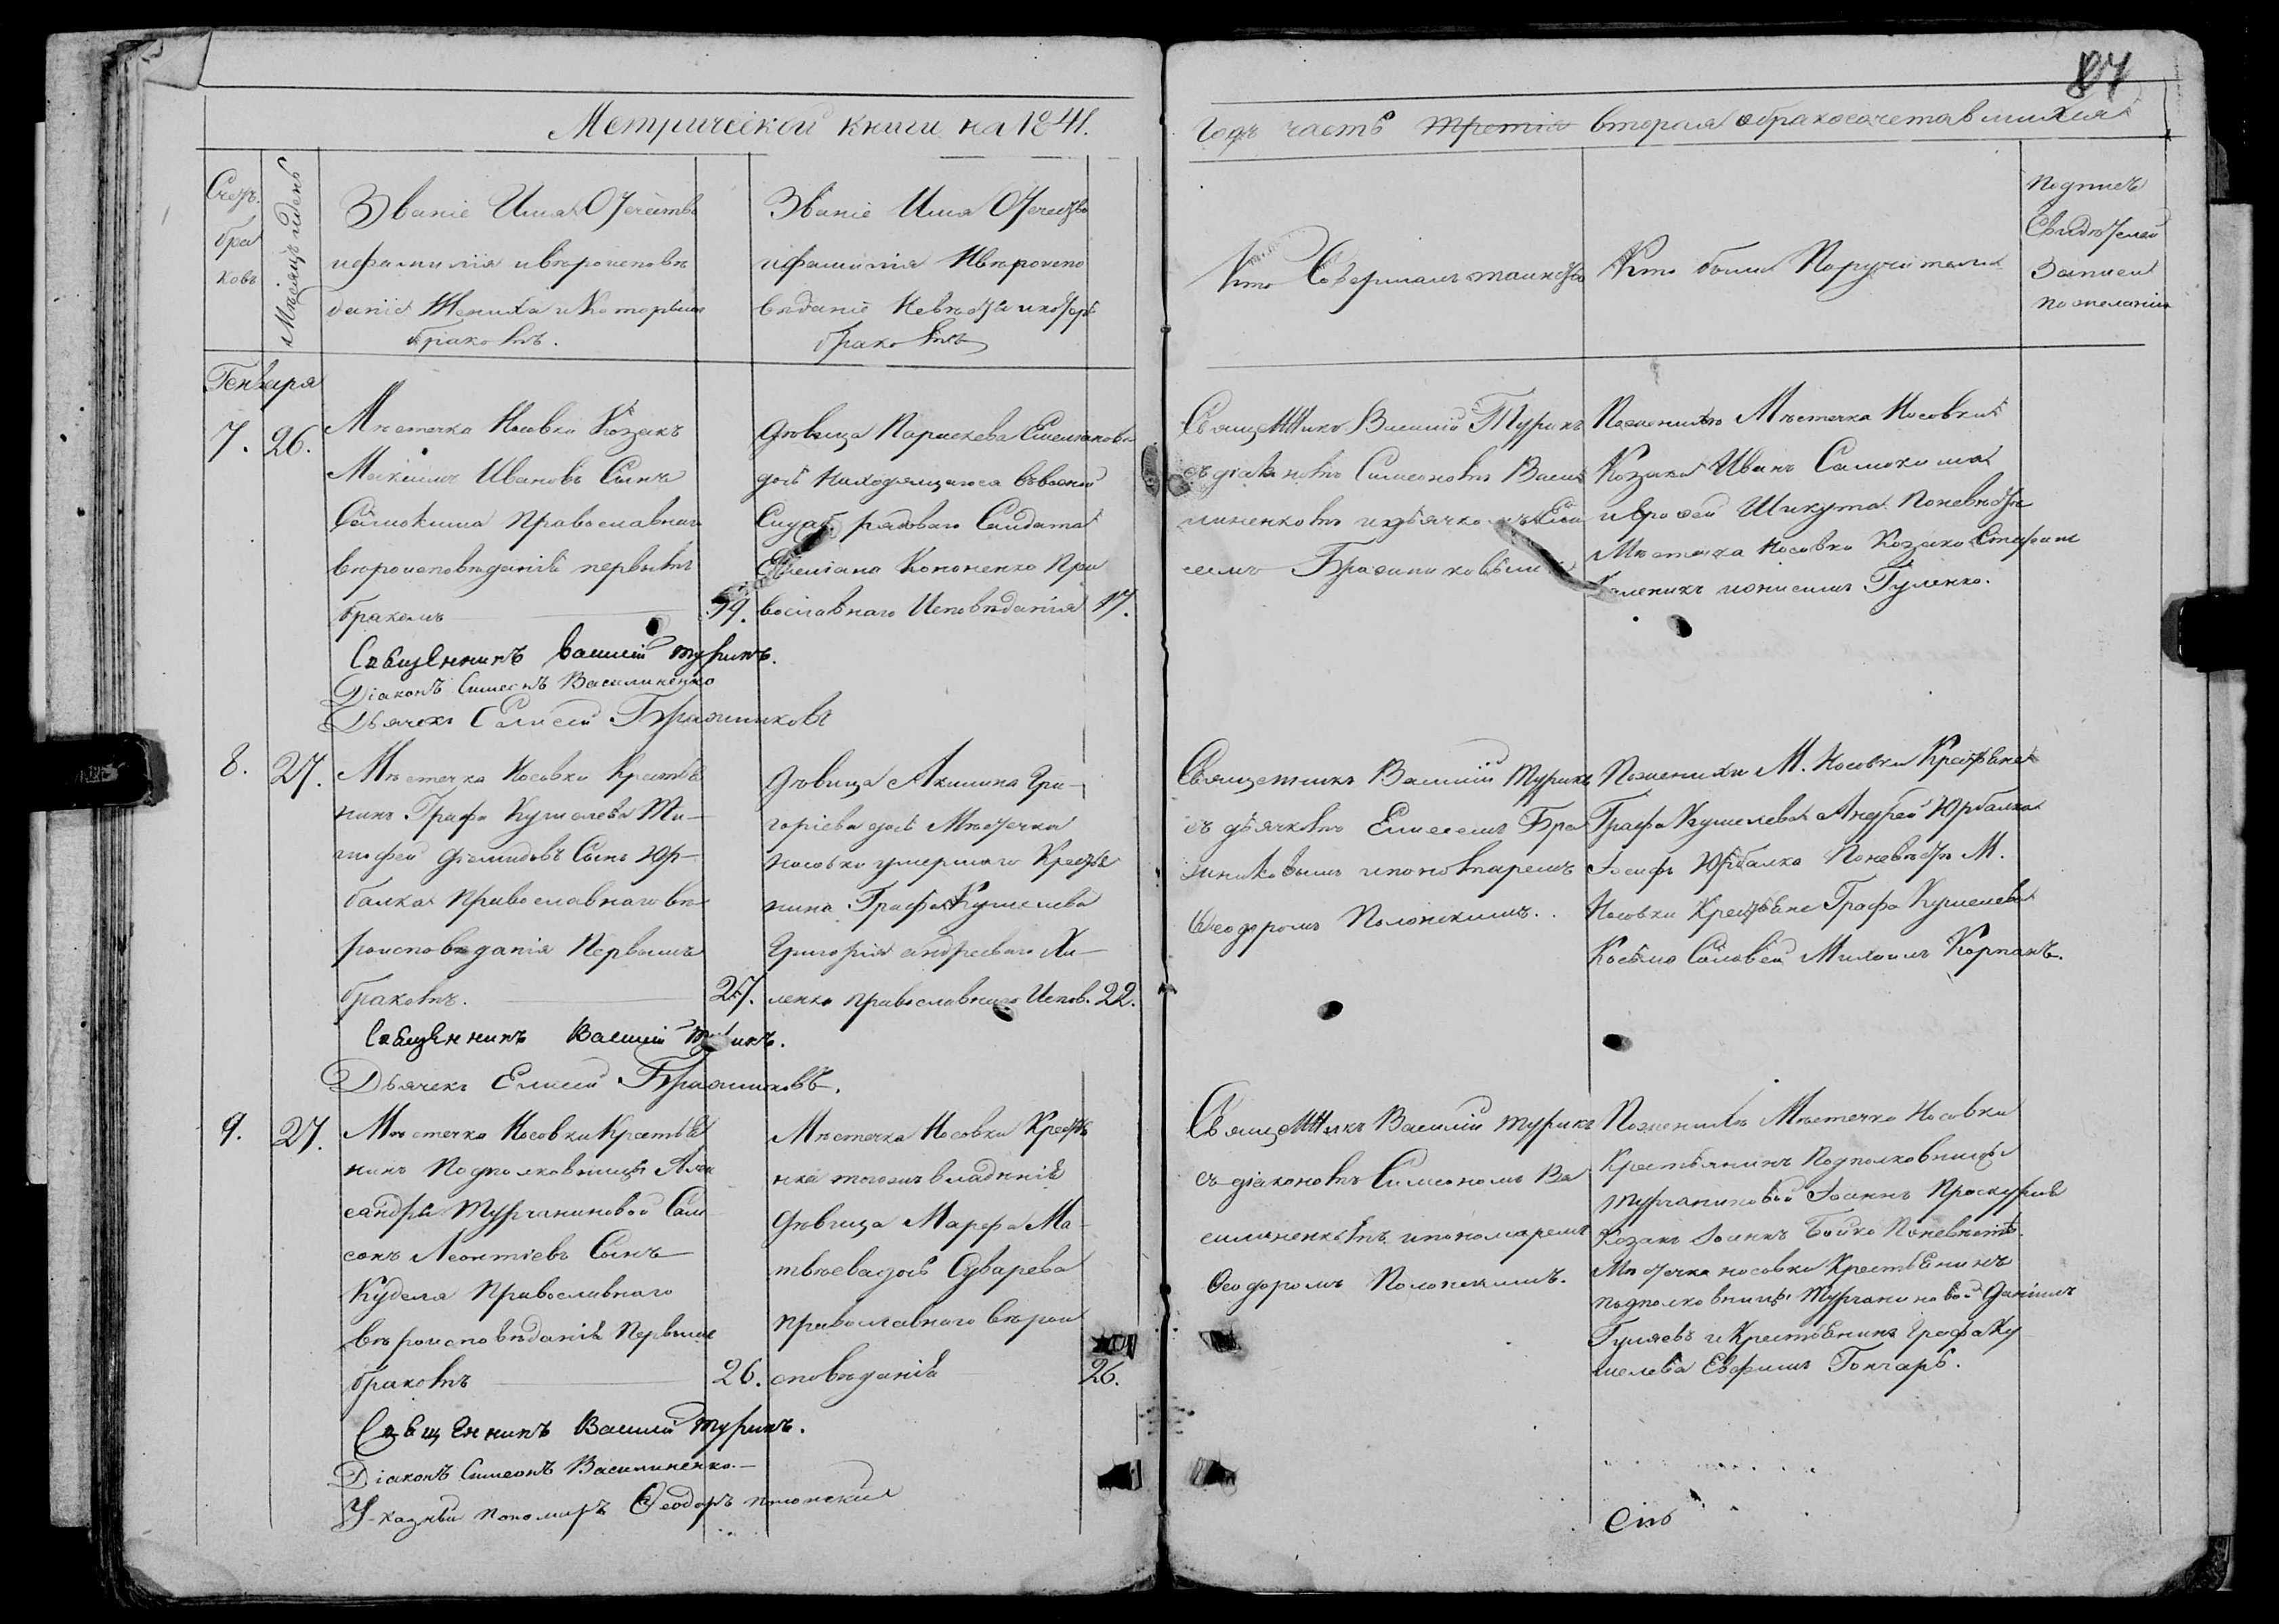 84
Метрической книги на 1841.
Годъ часть третiя вторая обракосочетавшихся
Счетъ
бра
ковъ
Мѣсяцъ и день
Званіе Имя Отечество
ифамилія ивѣроисповѣ
даніе Жениха и Которымъ
бракомъ.
Званіе Имя Отечество
ифамилія Ивѣроиспо
вѣданіе Невѣсты икотор
бракомъ
Кто Совершалъ таинство
Кто были Поручители
Подписъ
Свидѣтелей
Записи
по желанію
Генваря
7.
26.
Мѣстечка Носовки Козакъ
Максимъ Ивановъ Сынъ
Самокиша Православнаго
вѣроисповѣданія первымъ
бракомъ
дѣвица Параскева Емелiанова
дочь Находящагося въ
рядоваго Салдата
Емелiана Кононенко Пра
вославнаго Исповѣданiя
17.
Священникъ Василій Турикъ
съ дiакономъ Симеономъ Васи
линенкомъ идьячкомъ Ели
сеемъ Бражниковымъ
Поженихѣ Мѣстечка Носовки
Козаки Иванъ Самокиша
Шикута Поневѣстѣ
Мѣстечка Носовки Козаки Стефанъ
Гуленко.
Священникъ Василій Турикъ.
Діаконъ Симеонъ Василиненко
Дьячекъ Елисей Бражниковъ
8.
27.
Мѣстечка Носовки Крестья
нинъ Графа Кушелева Ти-
мофей Демидовъ Сынъ Юр-
балка Православнаго вѣ-
роисповѣданія Первымъ
бракомъ.
27.
дѣвица Акилина Гри-
горіева дочь Мѣстечка
Носовки умершаго Крестья
нина Графа Кушелева
Григорія Андреева Хи-
ленко православнаго Испов.
22.
Священникъ Василій Турикъ
съ дьячкомъ Елисеемъ Бра
жниковымъ ипономаремъ
Ѳеодоромъ Полонскимъ.
Поженихѣ М. Носовки Крестьяне
Графа Кушелева Андрей Юрбалка
Іосифъ Юрбалка Поневѣстѣ М.
Носовки Крестьяне Графа Кушелева
Косьма Соловей Михаилъ Корпанъ.
Священникъ Василій Турикъ.
Дьячекъ Елисей Бражниковъ.
9.
27.
Мѣстечка Носовки Крестья
нинъ Подполковницы Алек
сандры Турчаниновой Сам
сонъ Леонтіевъ Сынъ
Куделя Православнаго
вѣроисповѣданія Первымъ
бракомъ
26.
Мѣстечка Носовки Крестья
нка тогожъ владѣнія
Дѣвица Марфа Ма-
твѣева дочь Суварева
православнаго вѣрои
сповѣданія
26.
Священникъ Василій Турикъ
съ діакономъ Симеономъ Ва
силиненкомъ ипономаремъ
Ѳеодоромъ Полонскимъ.
Поженихѣ Мѣстечка Носовки
Крестьянинъ Подполковницы
Турчаниновой Іоаннъ Проскурня
Козакъ Іоаннъ Бойко Поневѣстѣ
Мѣстечка Носовки Крестьянинъ
подполковницы Турчаниновой Даніилъ
Гуляевъ и Крестьянинъ Графа Ку
шелева Евфимъ Гончаръ.
Священникъ Василій Турикъ.
Діаконъ Симеонъ Василиненко.
Указный пономарь Ѳеодоръ полонскій